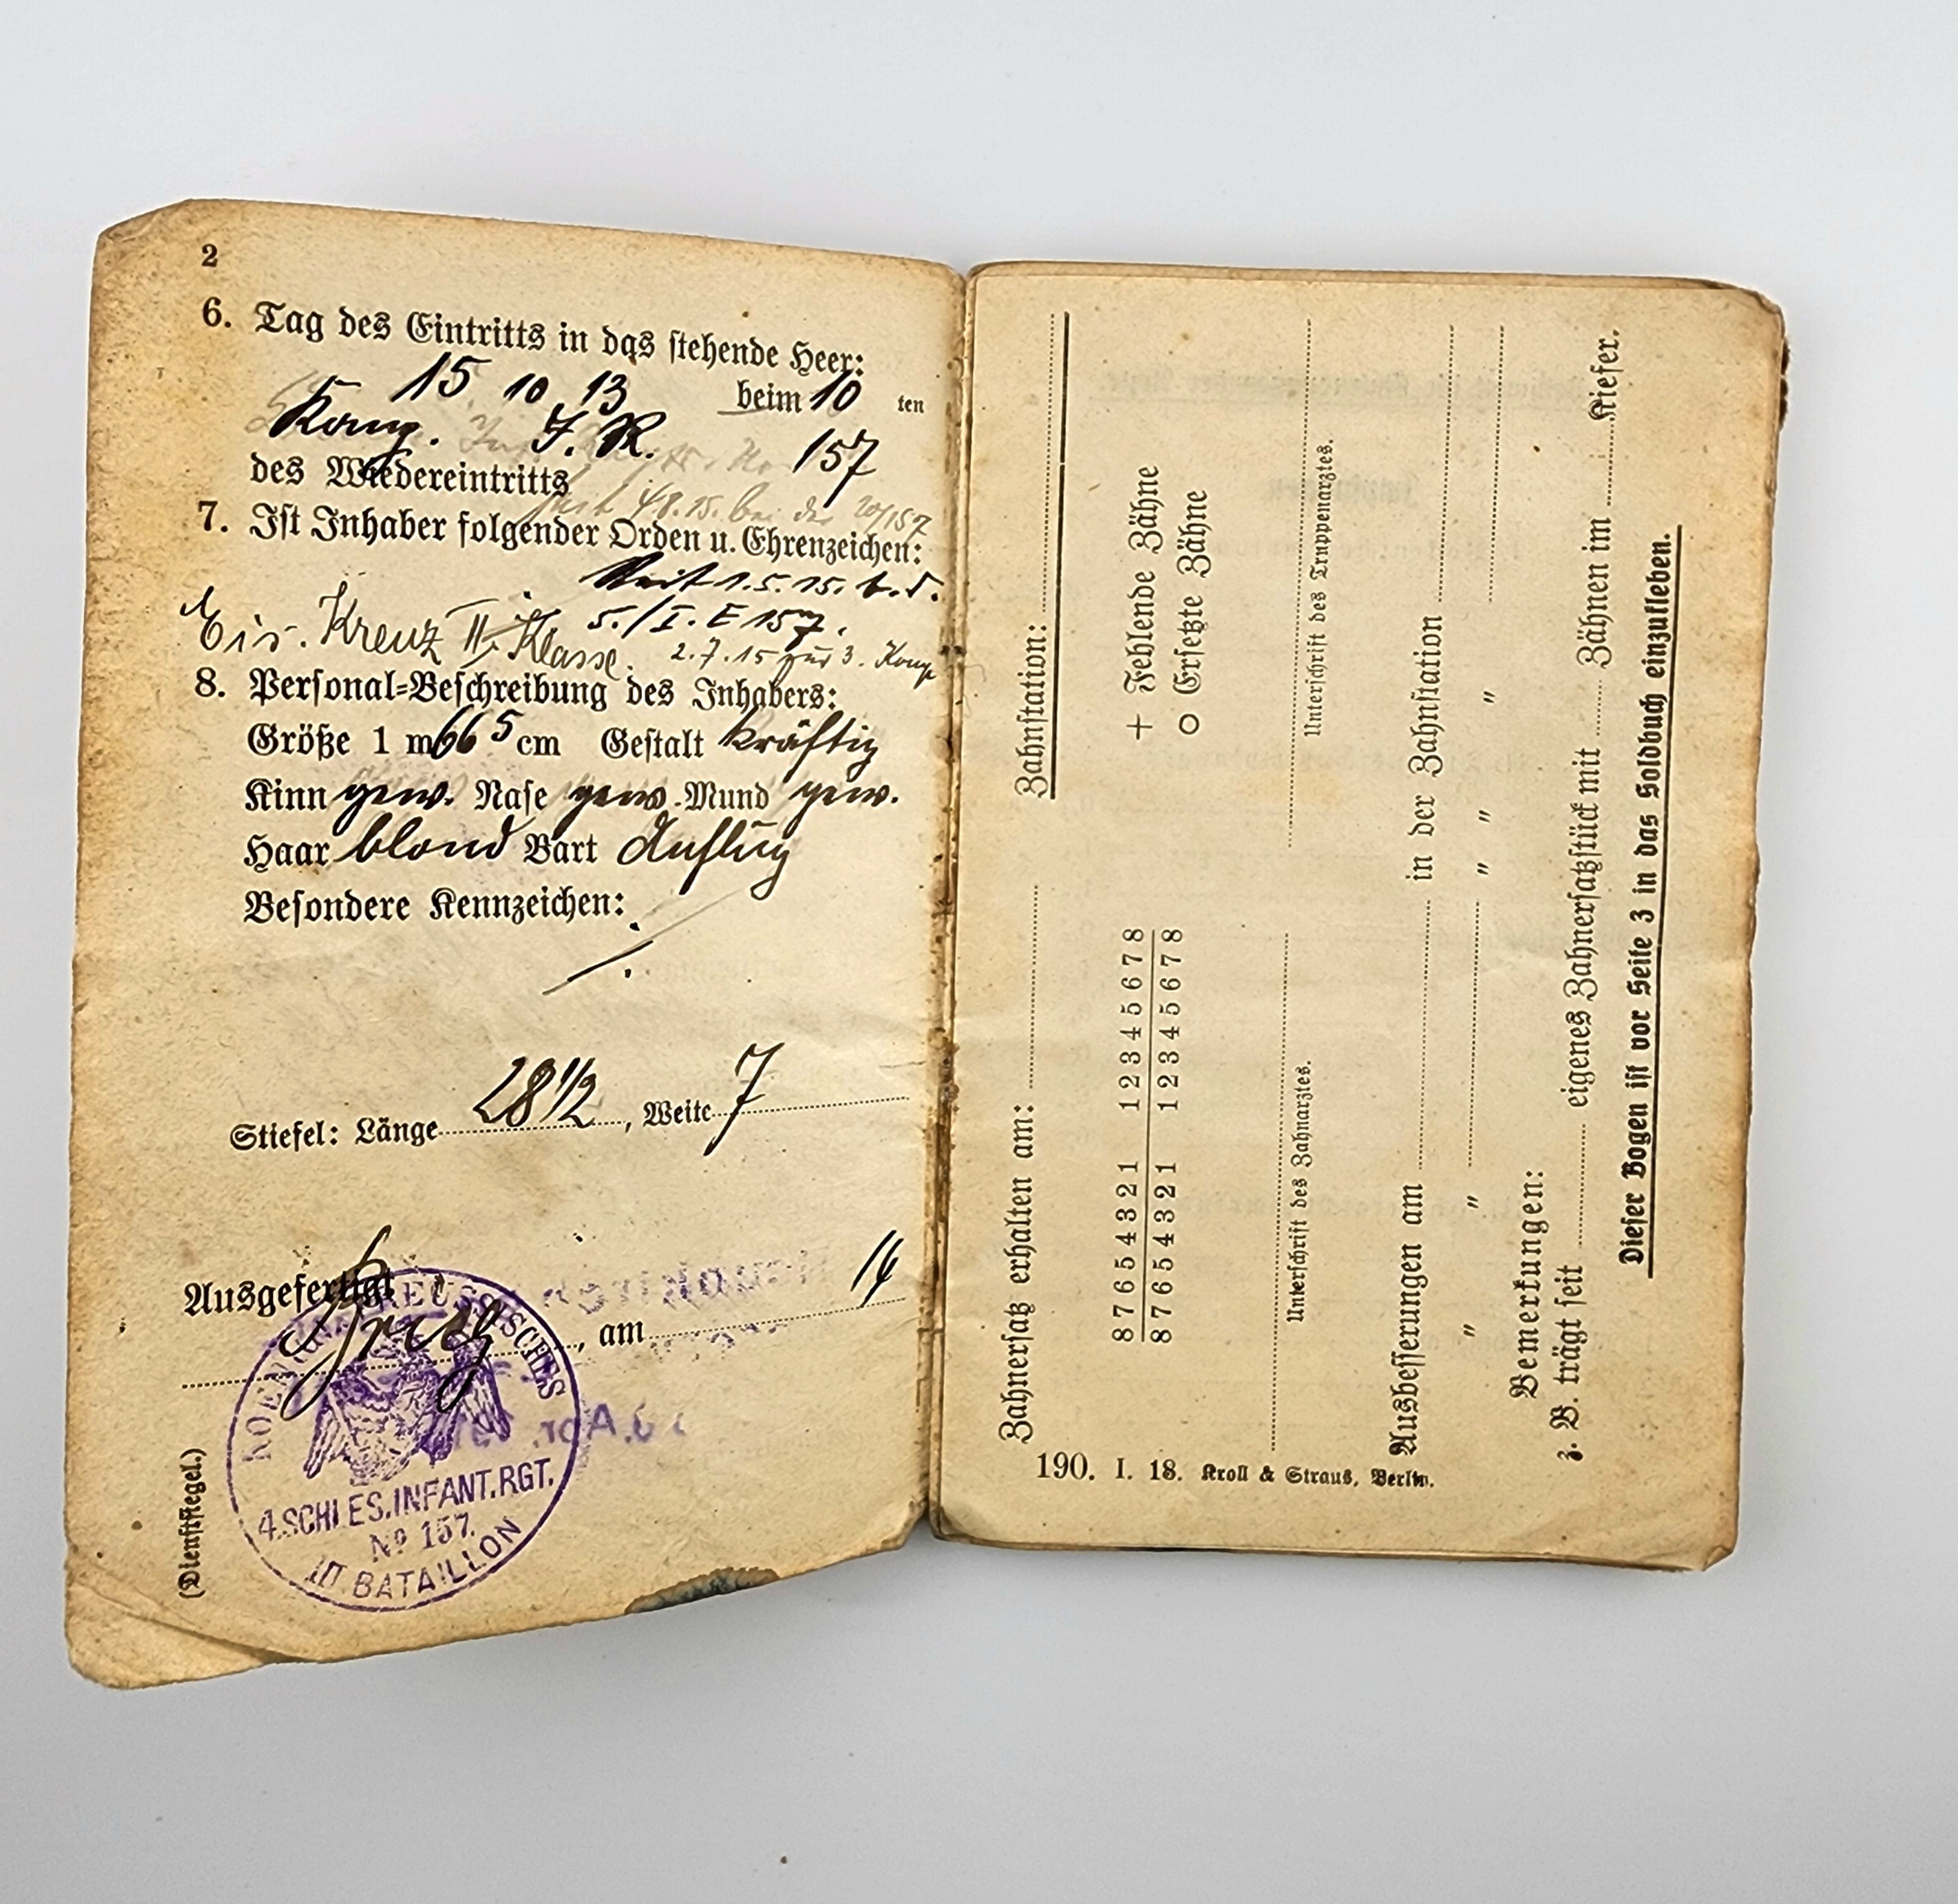 2
6. Tag des Eintritts in das stehende Heer:
15 10 13 beim 10 ten
Komp. J. R. 157
des Wiedereintritts
seit 4.8.15. bei der 20/157
7. Ist Inhaber folgender Orden u. Ehrenzeichen:
Seit 1.5.15. b. d.
5./I. E 157.
Eis. Kreuz II. Klasse. 2.7.15 zur 3. Komp
8. Personal-Beschreibung des Inhabers:
Größe 1 m 66 5 cm Gestalt kräftig
Kinn gew. Nase gew. Mund gew.
Haar blond Bart Anflug
Besondere Kennzeichen:
Stiefel: Länge 28 1/2, Weite 7
Ausgefertigt 14
Brieg, am
(Dienstsiegel.)
KOENIGL. PREUSSISCHES
4.SCHLES.INFANT.RGT.
No 157.
III BATAILLON
Zahnersatz erhalten am: Zahnstation:
8 7 6 5 4 3 2 1 1 2 3 4 5 6 7 8 + Fehlende Zähne
8 7 6 5 4 3 2 1 1 2 3 4 5 6 7 8 o Ersetzte Zähne
Unterschrift des Zahnarztes. Unterschrift des Truppenarztes.
Ausbesserungen am in der Zahnstation
" " " " "
Bemerkungen:
z. B. trägt seit eigenes Zahnersatzstück mit Zähnen im Kiefer.
Dieser Bogen ist vor Seite 3 in das Soldbuch einzukleben.
190. I. 18. Kroll & Straus, Berlin.